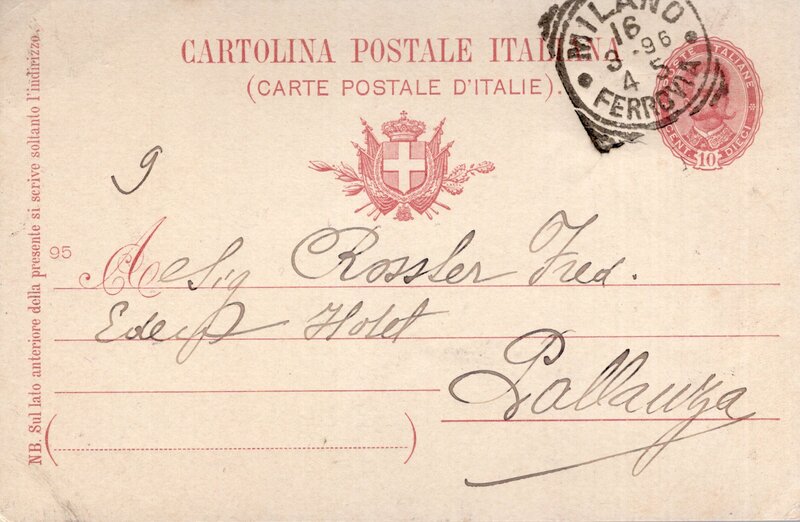 CARTOLINA POSTALE ITALIANA
(CARTE POSTALE D'ITALIE).
MILANO
16
3 - 96
4 S
FERROVIA
POSTE ITALIANE
CENT. 10 DIECI
9
95
Al Sig Rossler Fred.
Eden Hotel
Pallanza
NB. Sul lato anteriore della presente si scrive soltanto l'indirizzo.